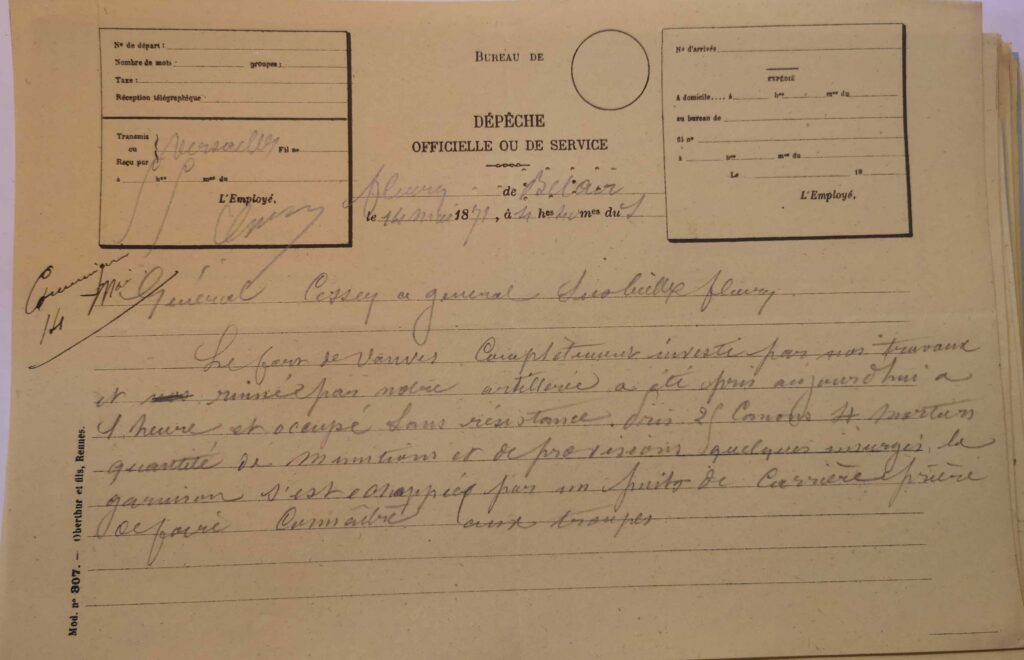 No de départ :
Nombre de mots groupes :
Taxe :
Réception télégraphique
Transmis
ou
Reçu par
Versailles Fil no
à hres mes du
L'Employé,
BUREAU DE
DÉPÊCHE
OFFICIELLE OU DE SERVICE
fleury de Bel air
le 14 mai 1871, à 4 hes 40 mes du S
No d'arrivée
EXPÉDIÉ
A domicile.... à hres mes du
au bureau de
fil no
à hres mes du
Le 18
L'Employé,
14 Mai
Général Cissey a general fleury
Le fort de Vanves Complètement investi par nos travaux
et ruiné par notre artillerie a été pris aujourd'hui a
1 heure et occupé sans résistance. pris 25 Canons 4 mortiers
quantité de munitions et de provisions quelques insurgés. la
garnison s'est echappée par un puits de Carrière prière
de faire Connaître aux troupes
Mod. no 307. — Oberthur et fils, Rennes.